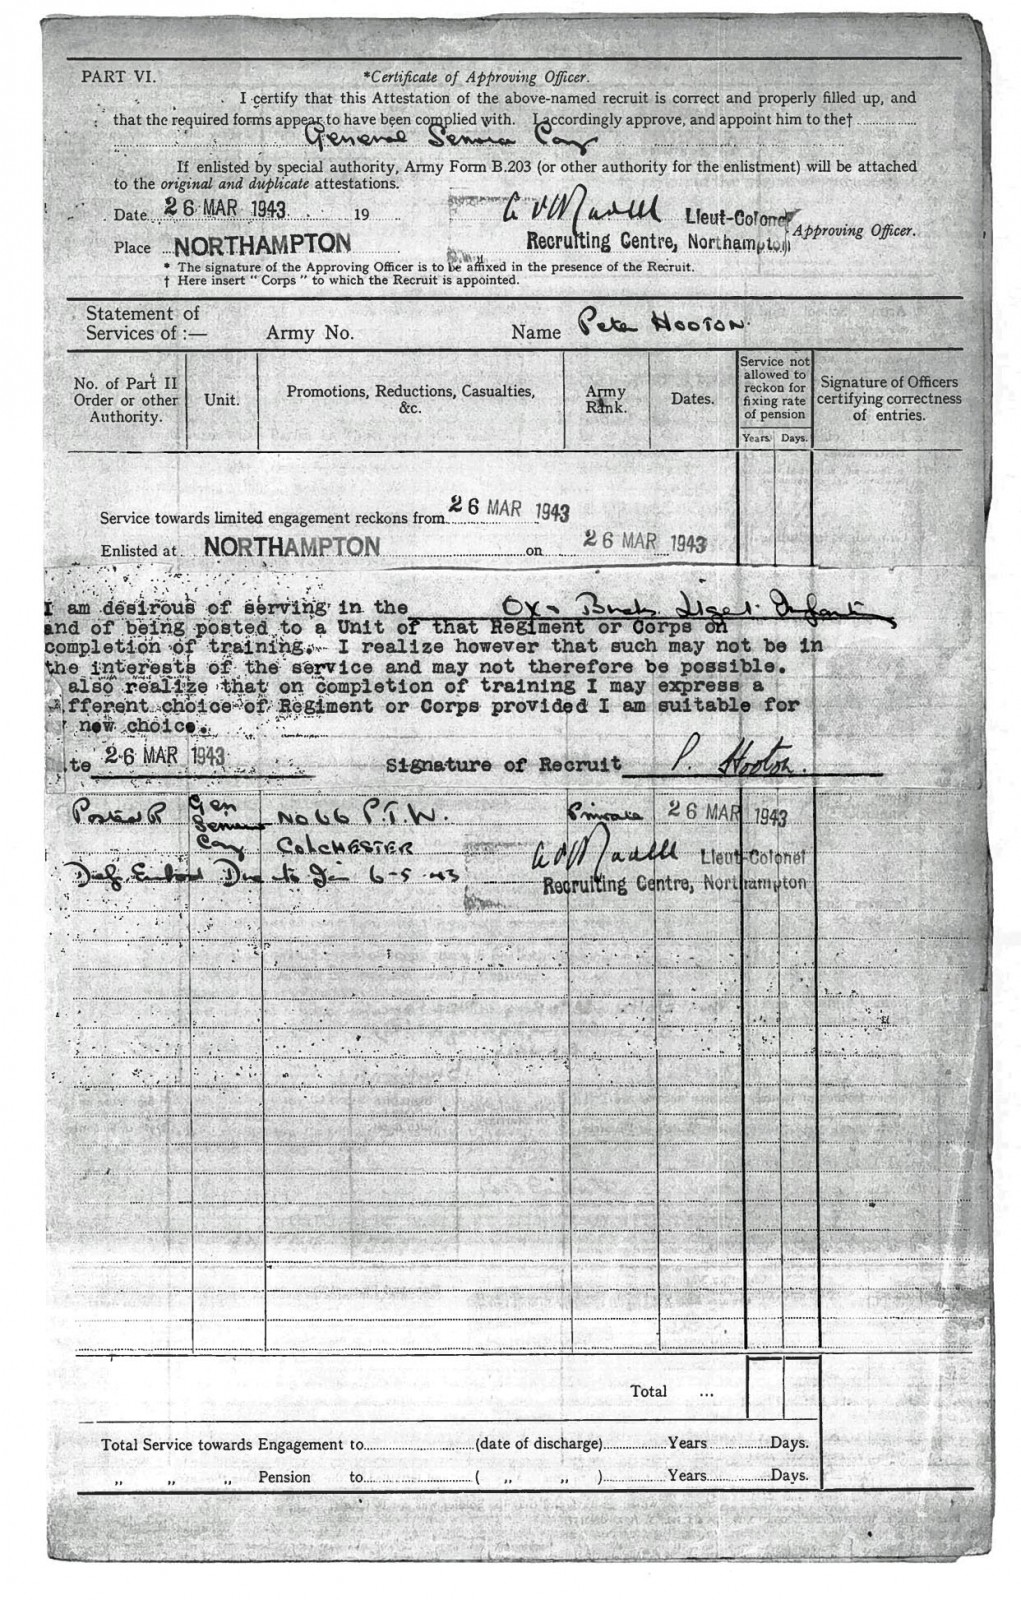 PART VI. *Certificate of Approving Officer.
I certify that this Attestation of the above-named recruit is correct and properly filled up, and
that the required forms appear to have been complied with. I accordingly approve, and appoint him to the†
General Service
If enlisted by special authority, Army Form B.203 (or other authority for the enlistment) will be attached
to the original and duplicate attestations.
Date 26 MAR 1943 19 Lieut-Colonel
Place NORTHAMPTON Recruiting Centre, Northampton Approving Officer.
* The signature of the Approving Officer is to be affixed in the presence of the Recruit.
† Here insert "Corps" to which the Recruit is appointed.
Statement of
Services of :— Army No. Name Peter HOOTON.
No. of Part II
Order or other
Authority.
Unit.
Promotions, Reductions, Casualties,
&c.
Army
Rank.
Dates.
Service not
allowed to
reckon for
fixing rate
of pension
Years Days.
Signature of Officers
certifying correctness
of entries.
Service towards limited engagement reckons from 26 MAR 1943
Enlisted at NORTHAMPTON on 26 MAR 1943
I am desirous of serving in the Ox & Bucks Light Infantry
and of being posted to a Unit of that Regiment or Corps on
completion of training. I realize however that such may not be in
the interests of the service and may not therefore be possible.
also realize that on completion of training I may express a
fferent choice of Regiment or Corps provided I am suitable for
new choice.
te 26 MAR 1943 Signature of Recruit P. Hooton.
Posted Gen No 66 P.T.W. Private 26 MAR 1943
Service
COLCHESTER Lieut-Colonel
Due to Join 6-5-43 Recruiting Centre, Northampton
Total ...
Total Service towards Engagement to (date of discharge) Years Days.
„ „ „ Pension to ( „ „ ) Years Days.